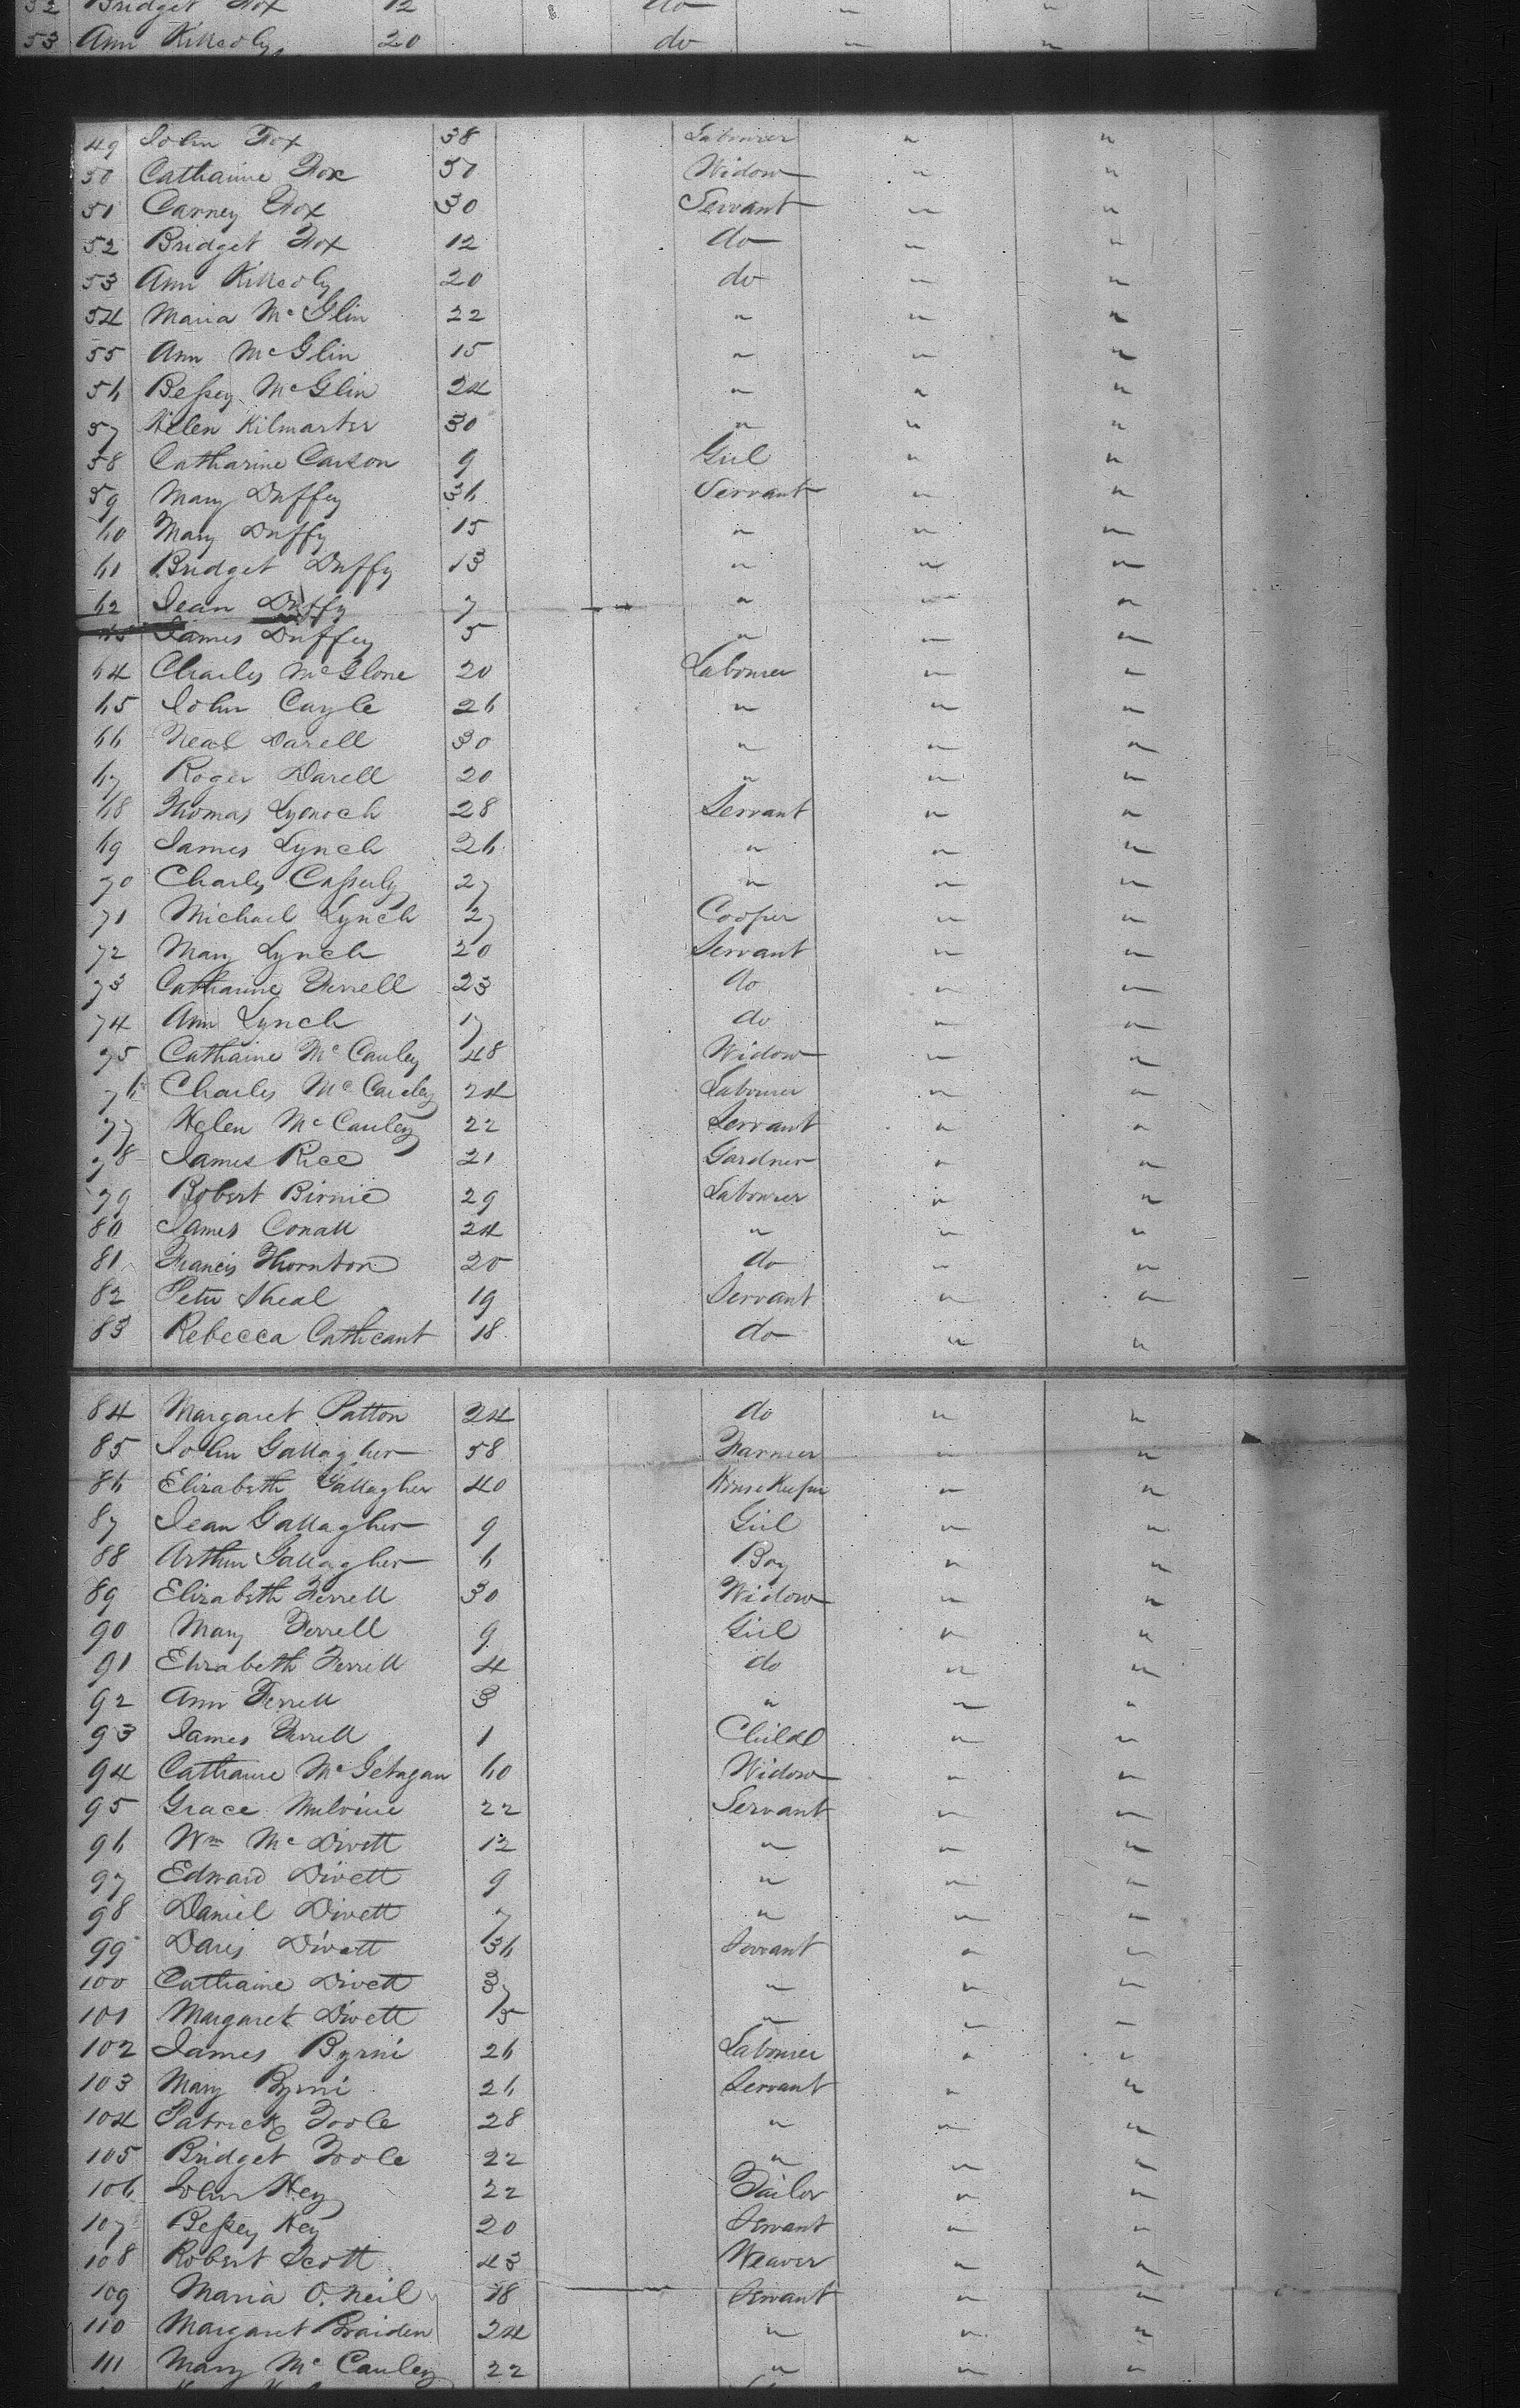 52 Bridget Fox 12 do " "
53 Ann Killedy 20 do " "
49 John Fox 38 Labourer " "
50 Catharine Fox 50 Widow " "
51 Carney Fox 30 Servant " "
52 Bridget Fox 12 do " "
53 Ann 20 do " "
54 Maria McGlin 22 " " "
55 Ann McGlin 15 " " "
56 Bessey McGlin 24 " " "
57 Hellen Kilmarter 30 " " "
58 Catharine Carson 9 Girl " "
59 Mary Duffey 36 Servant " "
60 Mary Duffy 15 " " "
61 Bridget Duffy 13 " " "
62 Jean Duffy 7 " " "
63 James Duffey 5 " " "
64 Charles McGlone 20 Labourer " "
65 John Cayle 26 " " "
66 Neal Darell 30 " " "
67 Roger Darell 20 " " "
68 Thomas Lynoch 28 Servant " "
69 James Lynch 26 " " "
70 Charles Casserly 27 " " "
71 Michael Lynch 27 Cooper " "
72 Mary Lynch 20 Servant " "
73 Catharine Ferrell 23 do " "
74 Ann Lynch 17 do " "
75 Catharine McCauley 48 Widow " "
76 Charles McCauley 24 Labourer " "
77 Helen McCauley 22 Servant " "
78 James Rice 21 Gardner " "
79 Robert Birnie 29 Labourer " "
80 James Conall 24 " " "
81 Francis Thornton 20 do " "
82 Peter Sheal 19 Servant " "
83 Rebecca Cathcant 18 do " "
84 Margaret Patton 24 do " "
85 John Gallagher 58 Farmer " "
86 Elizabeth Gallagher 40 House Keeper " "
87 Jean Gallagher 9 Girl " "
88 Arthur Gallagher 6 Boy " "
89 Elizabeth Ferrell 30 Widow " "
90 Mary Ferrell 9 Girl " "
91 Elizabeth Ferrell 4 do " "
92 Ann Ferrell 3 " " "
93 James Ferrell 1 Child " "
94 Catharine McGetagan 60 Widow " "
95 Grace Mulvine 22 Servant " "
96 Wm McDivett 12 " " "
97 Edward Divett 9 " " "
98 Daniel Divett 7 " " "
99 Divett 36 Servant " "
100 Catharine Divett 37 " " "
101 Margaret Divett 15 " " "
102 James Byrni 26 Labourer " "
103 Mary Byrni 26 Servant " "
104 Patrick Toole 28 " " "
105 Bridget Toole 22 " " "
106 John Hey 22 Tailor " "
107 Bessey Hey 20 Servant " "
108 Robert Scott 43 Weaver " "
109 Maria O.Neil 18 Servant " "
110 Margaret Braiden 24 " " "
111 Mary McCauley 22 " " "